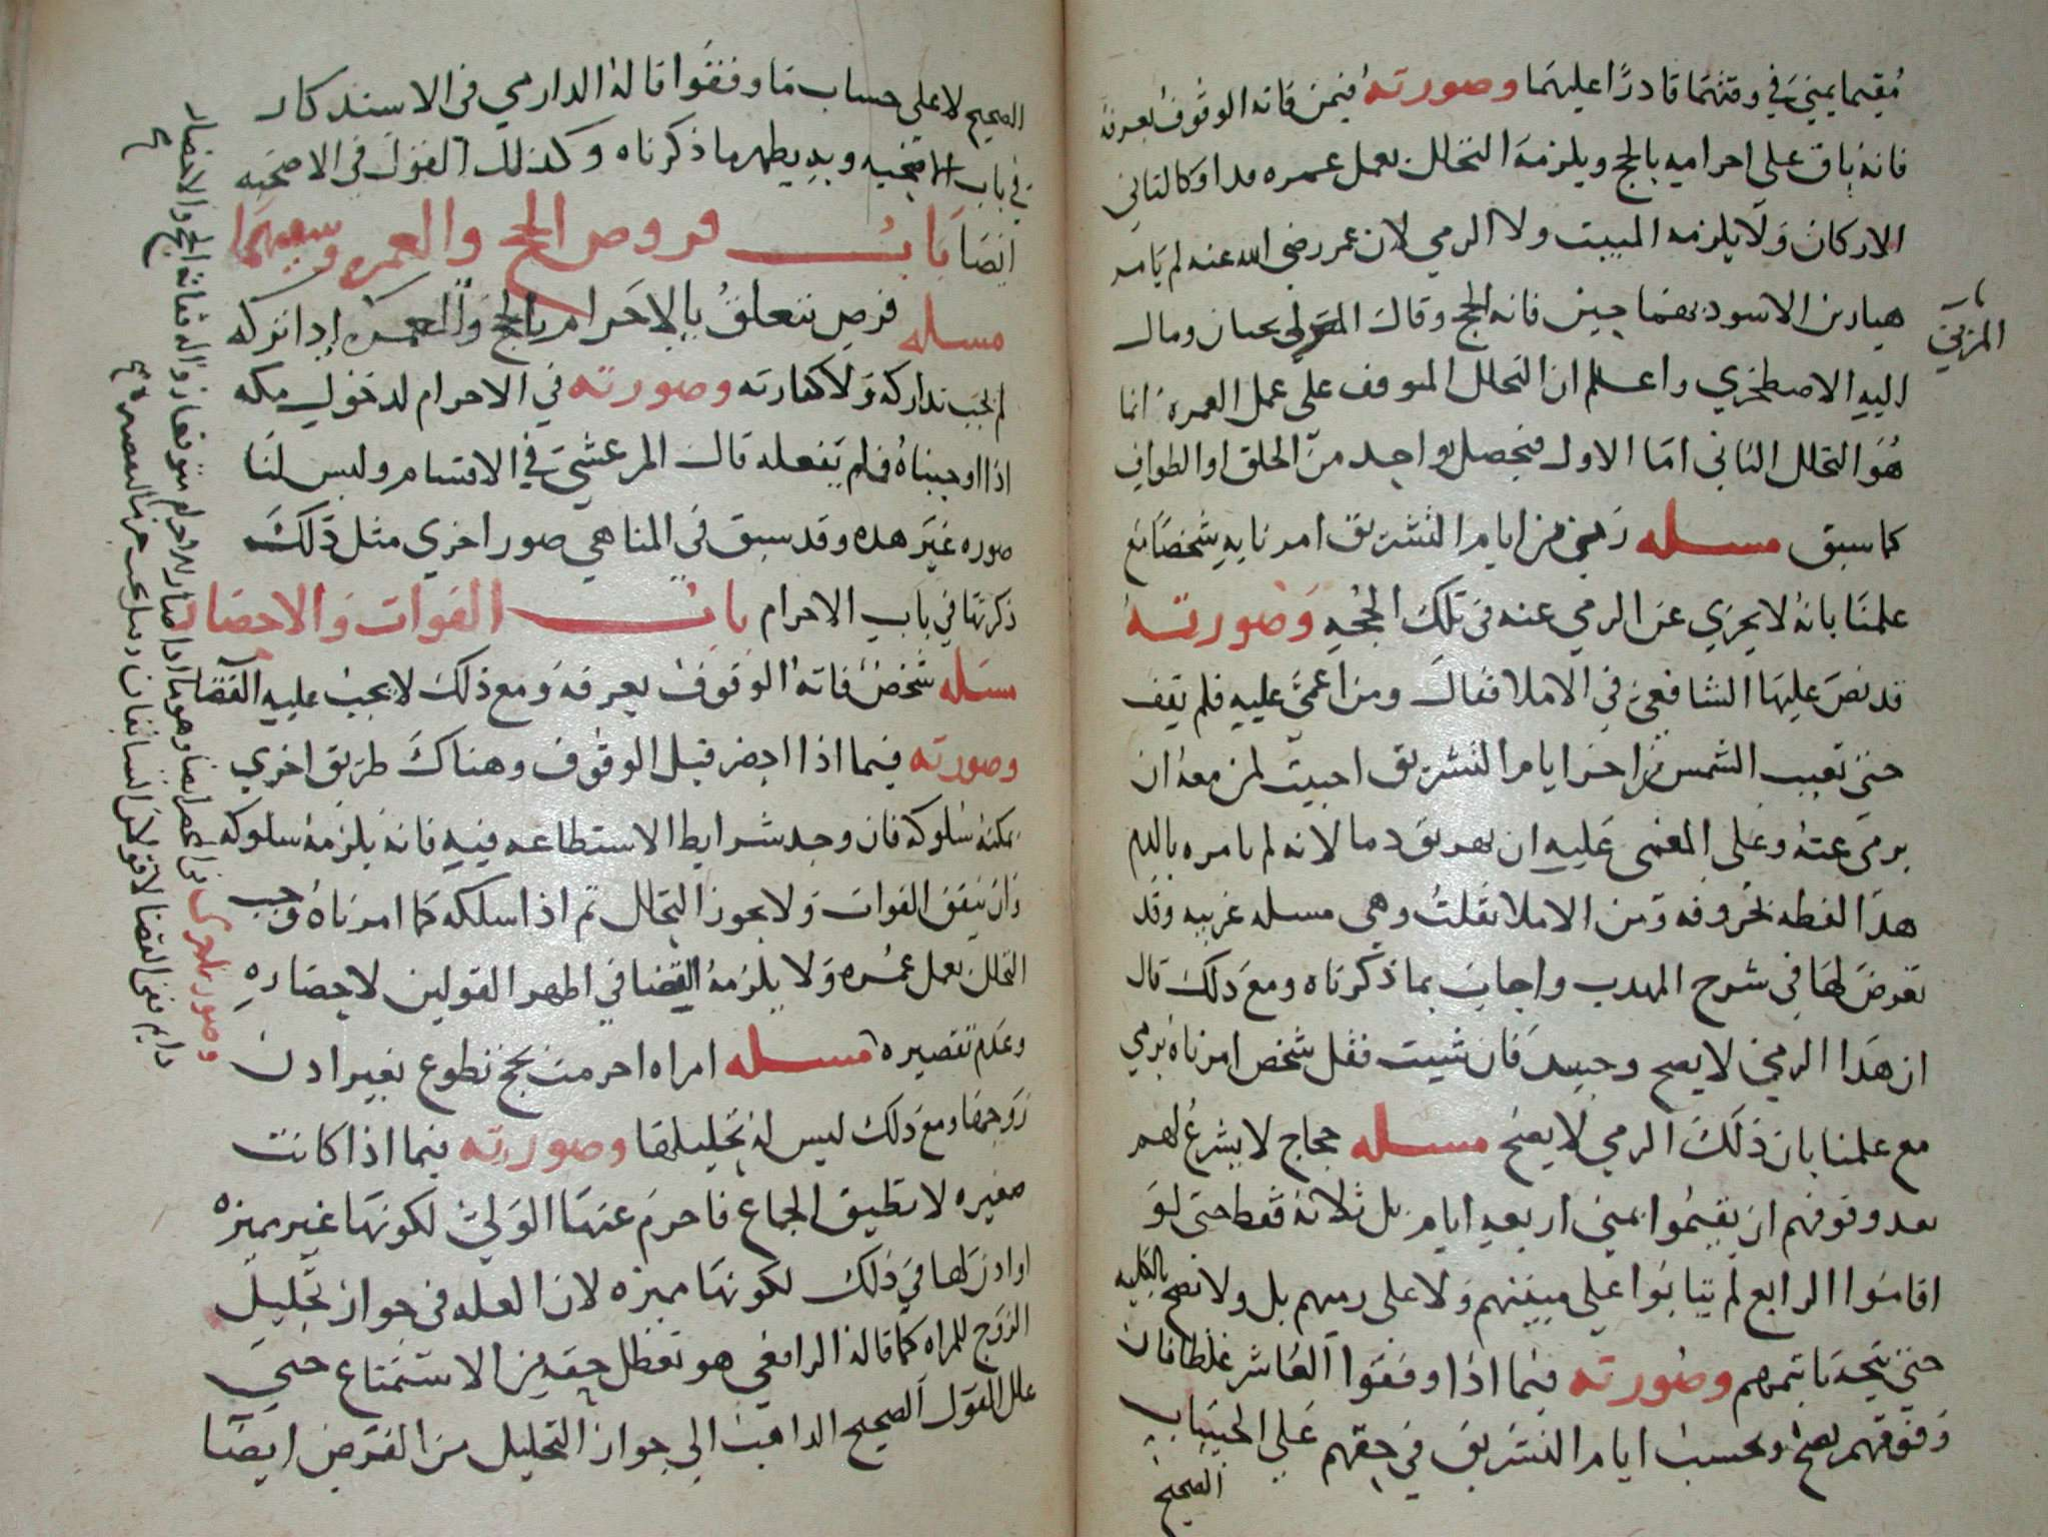 مُقيما بمنيَ في وقتهما قادرًا عليهما وصورته فيمن فاته الوقوف بعرفة
فانه باق على احرامه بالحج ويلزمه التحلل بعمل عمره
الاركان ولا يلزمه المبيت ولا الرمي لان عمر رضي الله عنه لم يامر
هبار بن الاسود بهما حين فاته الحج وقال يجبان ومال
المزني
اليه الاصطخري واعلم ان التحلل المتوقف على عمل العمرة انما
هُو التحلل الثاني امّا الاول فيحصل بواحد من الحلق او الطواف
كما سبق مسله رمي من ايام التشريق امرنا به شخصًا مع
علمنا بانه لا يجزي عن الرمي عنه في تلك الحجه وصورته
قد نصّ عليها الشافعي في الاملا فقال ومن اغمي عليه فلم يفق
حتى تغيب الشمس من اخر ايام التشريق احببت لمن معه ان
يرمي عنه وعلى المغمى عليه ان يهريق دما لانه لم يامره بالدم
هذا لفظه بحروفه ومن الاملا نقلت وهي مسله غريبه وقد
تعرض لها في شرح المهدب واجاب بما ذكرناه ومع ذلك قال
ان هذا الرمي لا يصح وحينيد فان شيت فقل شخص امرناه برمي
مع علمنا بان ذلك الرمي لا يصح مسله حجاج لا يشرع لهم
بعد وقوفهم ان يقيموا بمنى اربعه ايام بل ثلاثة فقط حتى لو
اقاموا الرابع لم يثابوا على مبيتهم ولا على رميهم بل ولا تصح بالكليه
حتى وصورته فيما اذا وقفوا العاشر غلطا فان
وقوفهم يصح وتحسب ايام التشريق في حقهم على الحساب
الصحيح
الصحيح لا على حساب ما وقفوا قاله الدارمي في الاستذكار
في باب الاضحيه وبه يظهر ما ذكرناه وكذلك القول في الاضحيه
ايضا باب فروض الحج والعمره وسننهما
مسله فرض يتعلق بالاحرام بالحج والعمره إدا تركه
لم يجب تداركه ولا كفارته وصورته في الاحرام لدخول مكه
اذا اوجبناه فلم يفعله قال المرعشي في الاقسام وليس لنا
صوره غير هده وقد سبق في المناهي صور اخري مثل ذلك
ذكرتها في باب الاحرام باب الفوات والاحصار
مسله شخص فاته الوقوف بعرفه ومع ذلك لا يجب عليه القضا
وصورته فيما اذا احصر قبل الوقوف وهناك طريق اخري
يمكنه سلوكه فان وجد شرايط الاستطاعه فيه فانه يلزمه سلوكه
وان تيقن الفوات ولا يجوز التحلل ثم اذا سلكه كما امرناه وجب
التحلل بعمل عمره ولا يلزمه القضا في اظهر القولين لاحصاره
وعدم تقصيره مسله امراه احرمت بحج تطوع بغير ادن
زوجها ومع ذلك ليس له تحليلها وصورته فيما اذا كانت
صغيره لا تطيق الجماع فاحرم عنها الولي لكونها غير مميزه
او ادن لها في ذلك لكونها مميزه لان العله في جواز تحليل
الزوج للمراه كما قاله الرافعي هو تعطل حقه من الاستمتاع حتى
علل القول الصحيح الداهب الي جواز التحليل من الفرض ايضا
وصوره اخرى